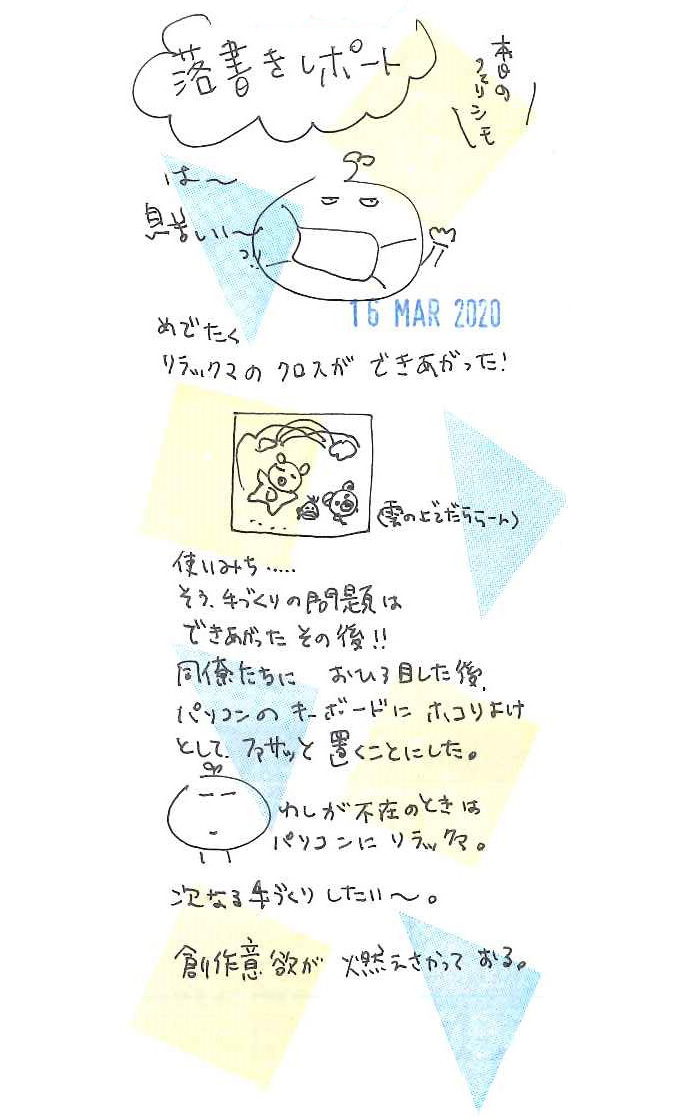 落書きレポート
本日の
フェリシモ
は〜
息苦しい〜
16 MAR 2020
めでたく
リラックマの クロスが できあがった!
(雲の上でだららーん)
使いみち・・・・・
そう、手づくりの問題は
できあがった その後!!
同僚たちに おひろ目した後、
パソコンの キーボードに ホコリよけ
として、ファサッと 置くことにした。
わしが不在のときは
パソコンに リラックマ。
次なる手づくりしたい〜。
創作意欲が 燃えさかって おる。